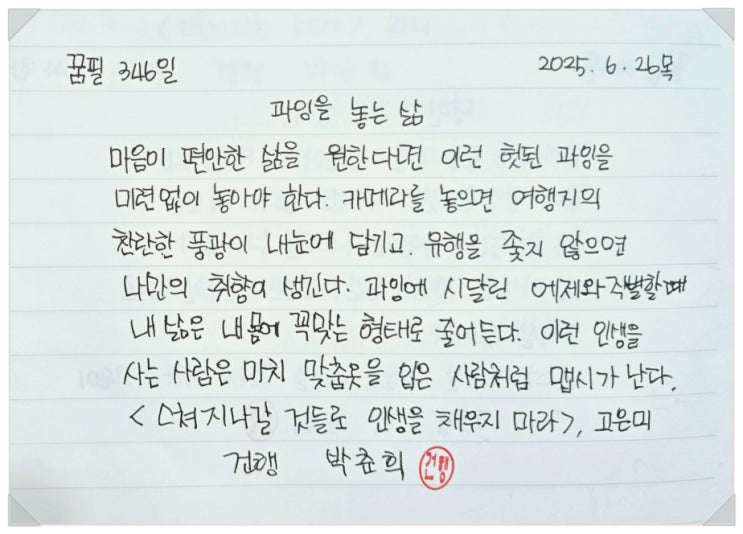 꿈필 346일 2025. 6. 26목
과잉을 놓는 삶
마음이 편안한 삶을 원한다면 이런 헛된 과잉을
미련없이 놓아야 한다. 카메라를 놓으면 여행지의
찬란한 풍광이 내눈에 담기고. 유행을 좇지 않으면
나만의 취향이 생긴다. 과잉에 시달린 어제와 작별할때
내 삶은 내몸에 꼭맞는 형태로 줄어든다. 이런 인생을
사는 사람은 마치 맞춤옷을 입은 사람처럼 맵시가 난다.
<스쳐지나갈 것들로 인생을 채우지 마라>, 고은미
건행 박춘희 건행